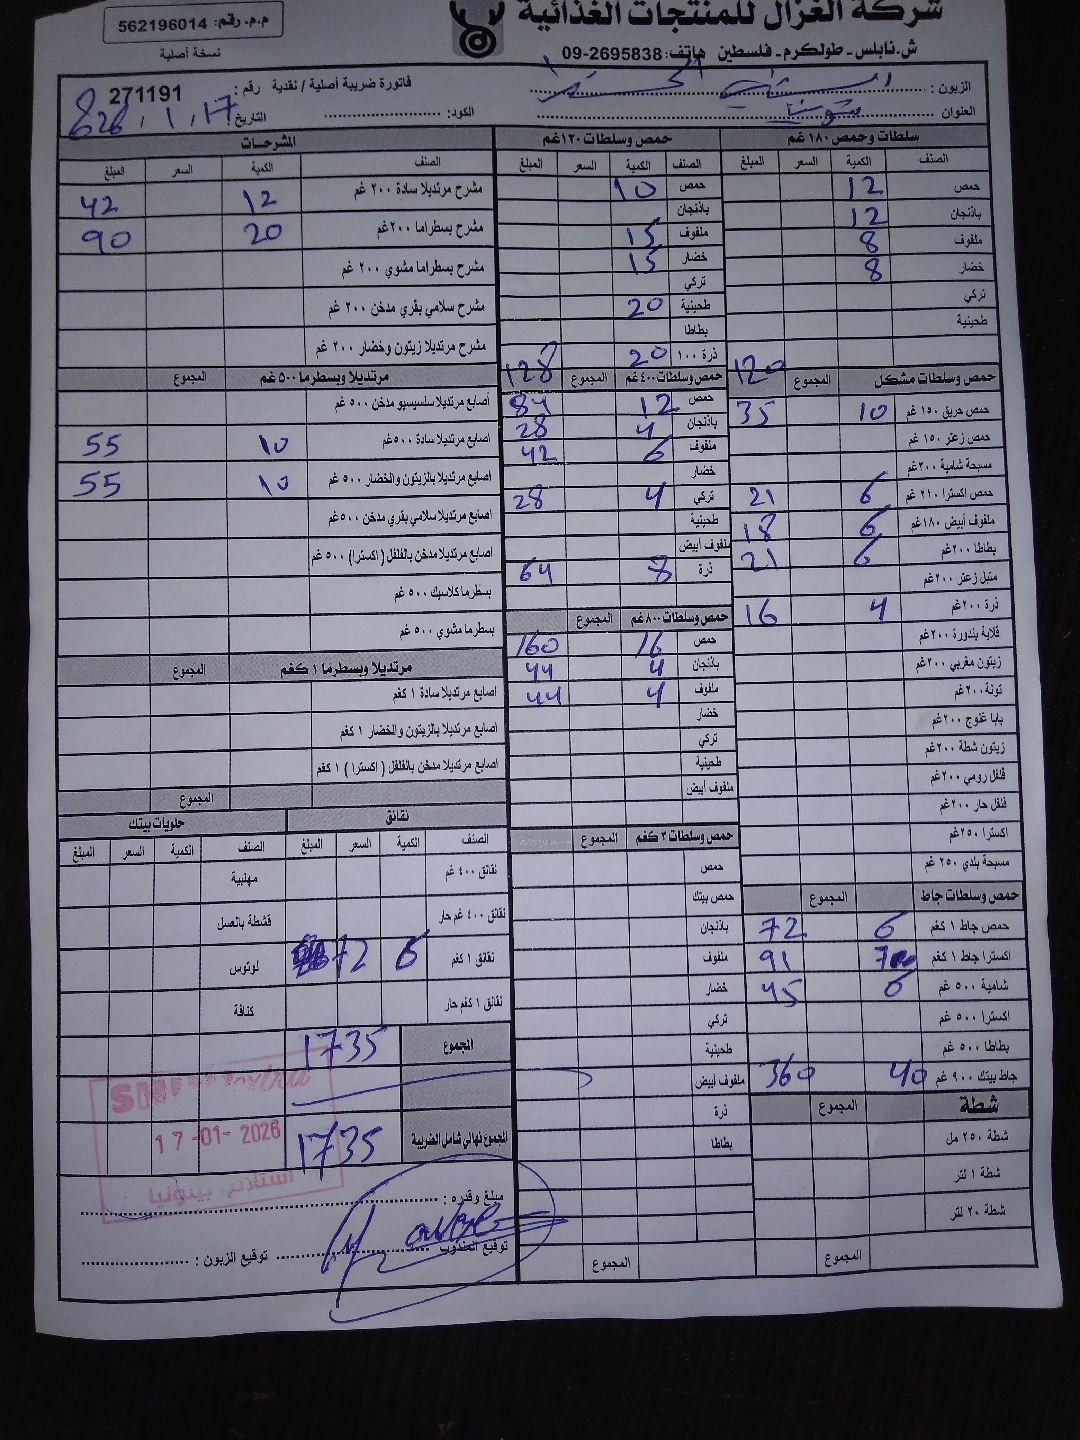 شركة الغزال للمنتجات الغذائية
م.م. رقم: 562196014
نسخة أصلية
ش.نابلس - طولكرم - فلسطين هاتف: 2695838-09
الزبون :
فاتورة ضريبة أصلية / نقدية رقم : 271191
العنوان
الكود:
التاريخ 17 / 1 /
سلطات وحمص ١٨٠ غم
الصنف الكمية السعر المبلغ
حمص 12
باذنجان 12
ملفوف 8
خضار 8
تركي
طحينية
120
حمص وسلطات مشكل المجموع
حمص حريق ١٥٠ غم 10 35
حمص زعتر ١٥٠ غم
مسبحة شامية ٢٠٠غم
حمص اكسترا ٢١٠ غم 6 21
ملفوف أبيض ١٨٠غم 6 18
بطاطا ٢٠٠غم 6 21
متبل زعتر ٢٠٠غم
ذرة ٢٠٠غم 4 16
قلاية بندورة ٢٠٠غم
زيتون مغربي ٢٠٠غم
تونة ٢٠٠غم
بابا غنوج ٢٠٠غم
زيتون شطة ٢٠٠غم
فلفل رومي ٢٠٠غم
فلفل حار ٢٠٠غم
اكسترا ٢٥٠غم
مسبحة بلدي ٢٥٠ غم
حمص وسلطات جاط المجموع
حمص جاط ١ كغم 6 72
اكسترا جاط ١ كغم 7 91
شامية ٥٠٠ غم 6 45
اكسترا ٥٠٠ غم
بطاطا ٥٠٠ غم
جاط بيتك ٩٠٠ غم 40 360
شطة المجموع
شطة ٢٥٠ مل
شطة ١ لتر
شطة ٢٠ لتر
المجموع
حمص وسلطات ١٢٠غم
الصنف الكمية السعر المبلغ
حمص 10
باذنجان
ملفوف 15
خضار 15
تركي
طحينية 20
بطاطا
ذرة ١٠٠ 20 128
حمص وسلطات ٤٠٠غم المجموع
حمص 12 84
باذنجان 4 28
ملفوف 6 42
خضار
تركي 4 28
طحينية
ملفوف أبيض
ذرة 8 64
حمص وسلطات ٨٠٠غم المجموع
حمص 16 160
باذنجان 4 44
ملفوف 4 44
خضار
تركي
طحينية
ملفوف أبيض
حمص وسلطات ٣ كغم المجموع
حمص
حمص بيتك
باذنجان
ملفوف
خضار
تركي
طحينية
ملفوف أبيض
ذرة
بطاطا
المجموع
المشرحات
الصنف الكمية السعر المبلغ
مشرح مرتديلا سادة ٢٠٠ غم 12 42
مشرح بسطراما ٢٠٠غم 20 90
مشرح بسطراما مشوي ٢٠٠ غم
مشرح سلامي بقري مدخن ٢٠٠ غم
مشرح مرتديلا زيتون وخضار ٢٠٠ غم
مرتديلا وبسطرما ٥٠٠ غم المجموع
أصابع مرتديلا سلسيسيو مدخن ٥٠٠ غم
اصابع مرتديلا سادة ٥٠٠غم 10 55
اصابع مرتديلا بالزيتون والخضار ٥٠٠ غم 10 55
اصابع مرتديلا سلامي بقري مدخن ٥٠٠غم
اصابع مرتديلا مدخن بالفلفل ( اكسترا) ٥٠٠ غم
بسطرما كلاسيك ٥٠٠ غم
بسطرما مشوي ٥٠٠ غم
مرتديلا وبسطرما ١ كغم المجموع
اصابع مرتديلا سادة ١ كغم
اصابع مرتديلا بالزيتون والخضار ١ كغم
اصابع مرتديلا مدخن بالفلفل ( اكسترا ) ١ كغم
المجموع
نقانق
حلويات بيتك
الصنف الكمية السعر المبلغ
الصنف الكمية السعر المبلغ
نقانق ٤٠٠ غم
مهلبية
نقانق ٤٠٠ غم حار
قشطة بالعسل
نقانق ١ كغم 6 72
لوتوس
نقانق ١ كغم حار
كنافة
المجموع 1735
المجموع نهائي شامل الضريبة 1735
17-01-2026
مبلغ وقدره :
توقيع المندوب
توقيع الزبون :